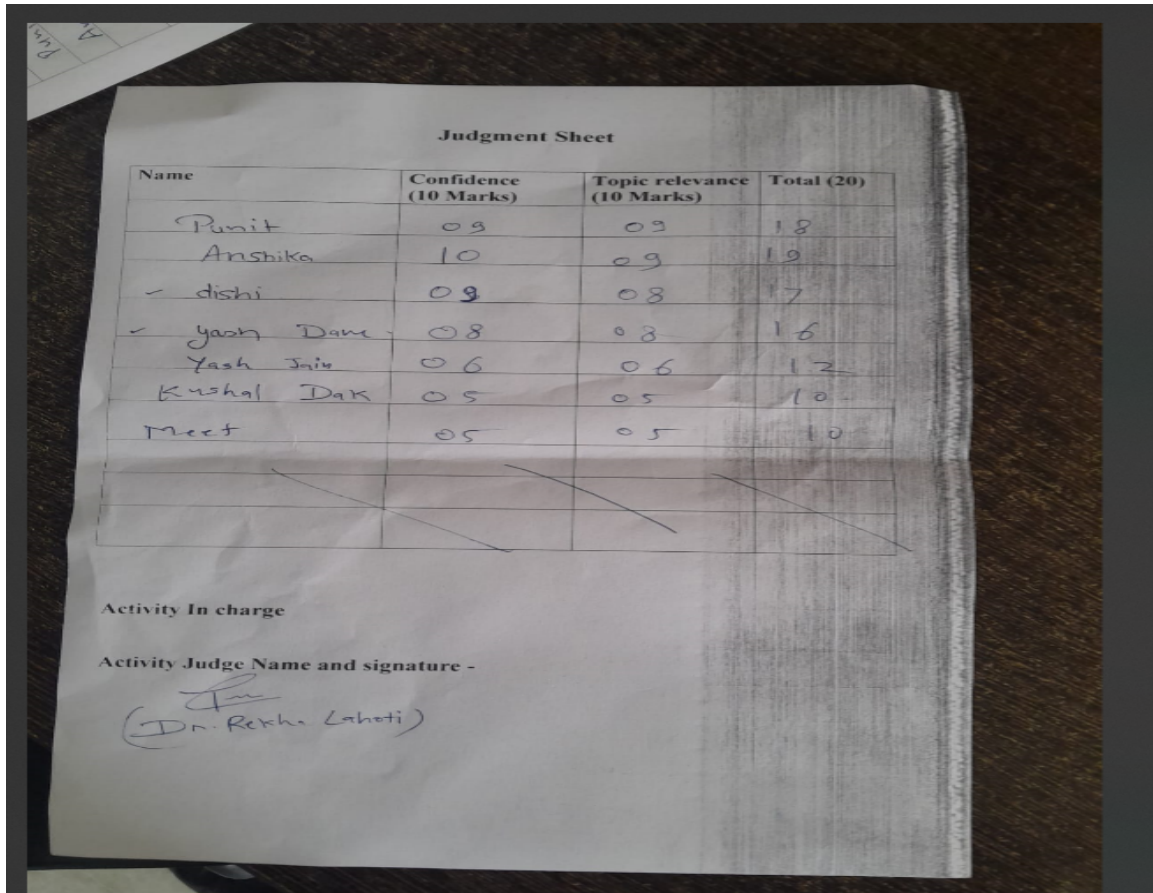 Judgment Sheet
Name Confidence (10 Marks) Topic relevance (10 Marks) Total (20)
Punit 09 09 18
Anshika 10 09 19
dishi 09 08 17
Yash Dave 08 08 16
Yash Jain 06 06 12
Kushal Dak 05 05 10
Meet 05 05 10
Activity In charge
Activity Judge Name and signature -
(Dr. Rekha Lahoti)